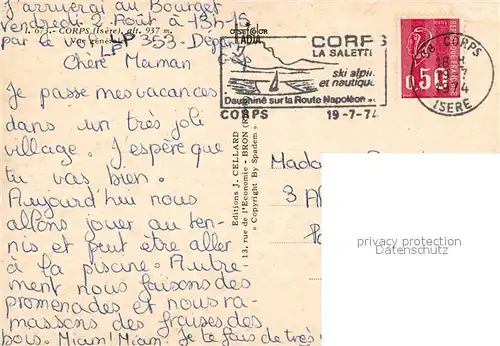 J'arriverai au Bourget
vendredi 2 Août à 13h15
I. 673. - CORPS (Isère), alt. 937 m.
par le vol LP 353 - Départ
Vue générale
Chère Maman
Je passe mes vacances
dans un très joli
village. J'espère que
tu vas bien.
Aujourd'hui nous
allons jouer au ten-
nis et peut être aller
à la piscine. Autre
ment nous faisons des
promenades et nous ra-
massons des fraises des
bois. Miam! Miam! Je te fais de très
Editions J. CELLARD
13, rue de l'Economie - BRON
« Copyright By Spadem »
CORPS
LA SALETTE
ski alpin
et nautique
Dauphiné sur la Route Napoléon
CORPS 19-7-74
0,50
REPUBLIQUE FRANCAISE
CORPS
ISERE
Madame
3
privacy protection
Datenschutz